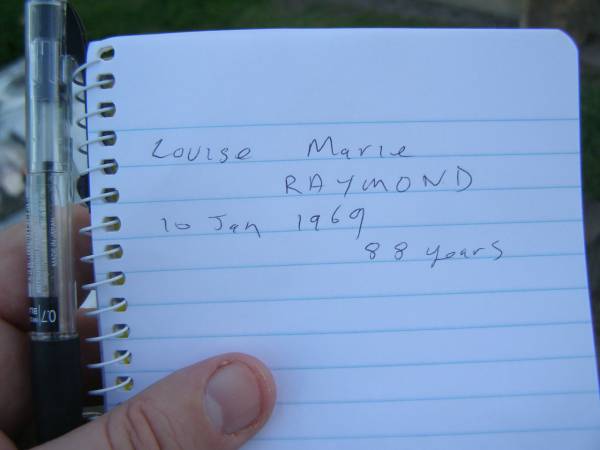 Louise Marie
RAYMOND
10 Jan 1969
88 years
0.7